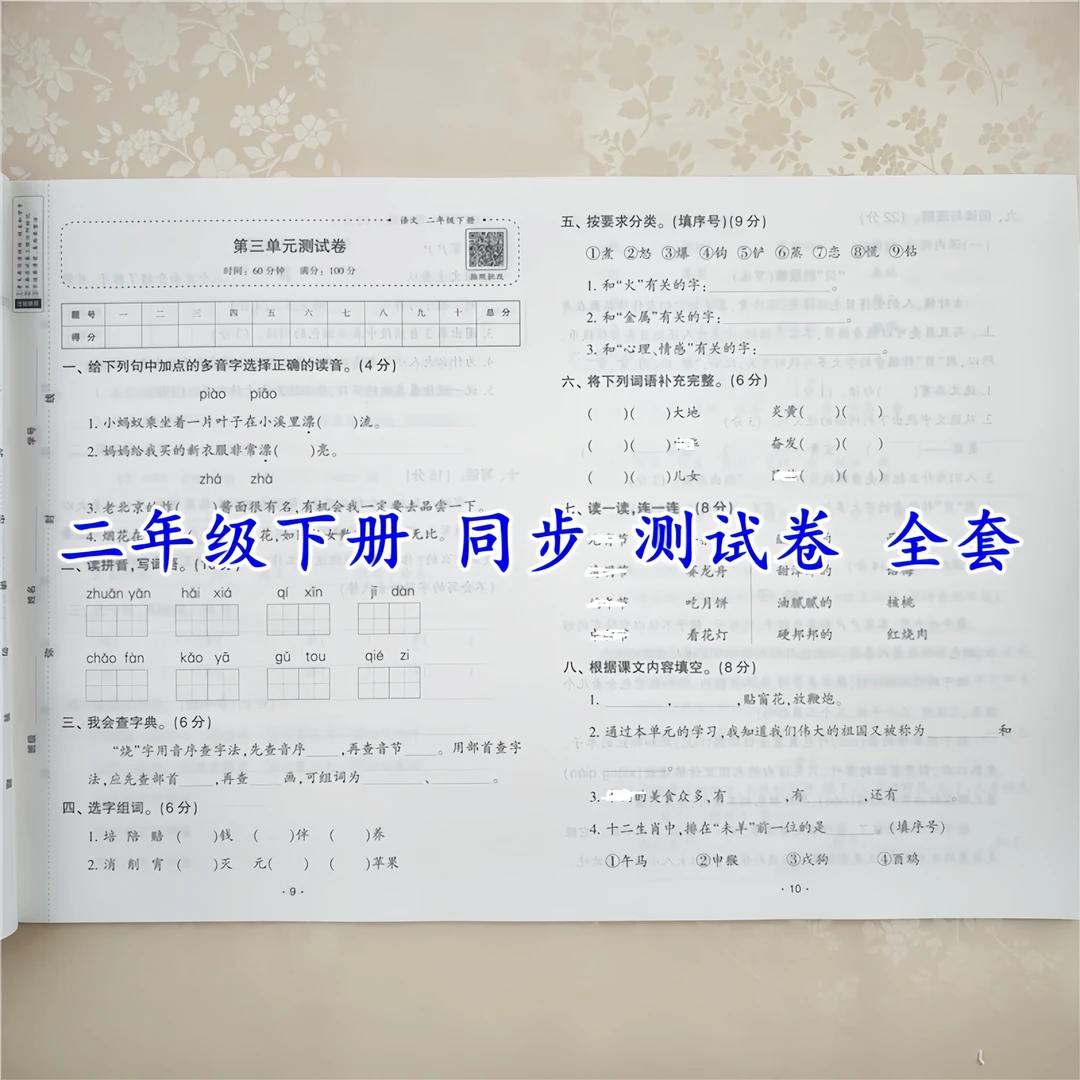 语文 二年级下册
第三单元测试卷
时间:60分钟 满分:100分
拍照批改
题号 一 二 三 四 五 六 七 八 九 十 总分
得分
一、给下列句中加点的多音字选择正确的读音。(4分)
piào piāo
1. 小蚂蚁乘坐着一片叶子在小溪里漂( )流。
2. 妈妈给我买的新衣服非常漂( )亮。
zhá zhà
3. 老北京的炸( )酱面很有名,有机会我一定要去品尝一下。
4. 烟花在 花,如 女 无比。
二、读拼音,写词语。
zhuān yān hǎi xiá qí xīn jī dàn
chǎo fàn kǎo yā gǔ tou qié zi
三、我会查字典。(6分)
“烧”字用音序查字法,先查音序____,再查音节____。用部首查字
法,应先查部首____,再查____画,可组词为______、______。
四、选字组词。(6分)
1. 培 陪 赔 ( )钱 ( )伴 ( )养
2. 消 削 宵 ( )灭 元( ) ( )苹果
·9·
五、按要求分类。(填序号)(9分)
①煮 ②怒 ③爆 ④钩 ⑤铲 ⑥蒸 ⑦恋 ⑧慌 ⑨钻
1. 和“火”有关的字:____________。
2. 和“金属”有关的字:____________。
3. 和“心理、情感”有关的字:____________。
六、将下列词语补充完整。(6分)
( )( )大地 炎黄( )( )
( )( ) 奋发( )( )
( )( )儿女 ( )( )
七、读一读,连一连。(8分)
二年级下册 同步 测试卷 全套
节 赛龙舟 的
节 吃月饼 油腻腻的 核桃
节 看花灯 硬邦邦的 红烧肉
八、根据课文内容填空。(8分)
1. ________,________,贴窗花,放鞭炮。
2. 通过本单元的学习,我知道我们伟大的祖国又被称为________和
________。
3. 的美食众多,有______,有______,还有______。
4. 十二生肖中,排在“未羊”前一位的是______(填序号)
①午马 ②申猴 ③戌狗 ④酉鸡
·10·
学号
姓名
班级
线
封